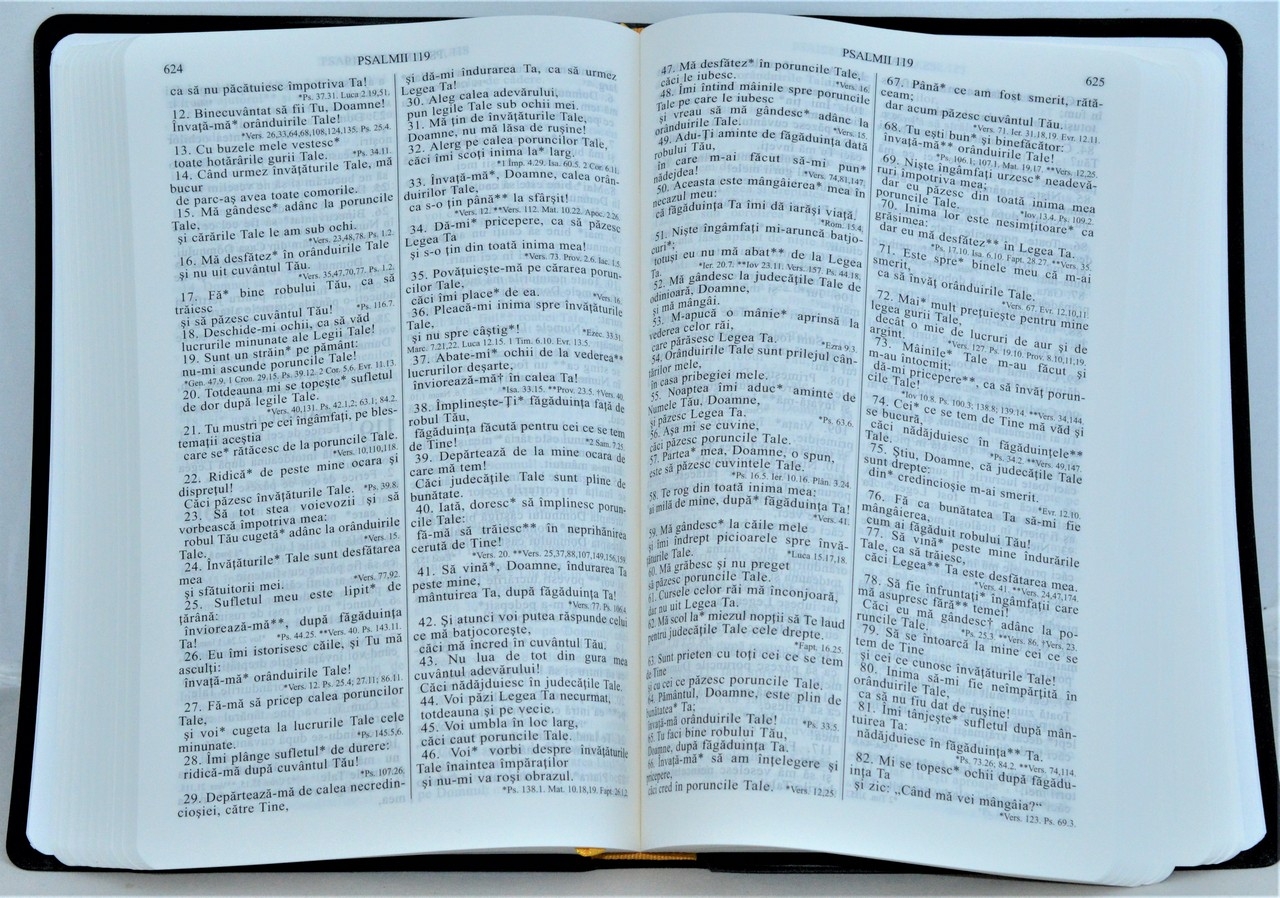 624
PSALMII 119
ca să nu păcătuiesc împotriva Ta!
*Ps. 37.31. Luca 2.19,51.
12. Binecuvântat să fii Tu, Doamne!
Învaţă-mă* orânduirile Tale!
*Vers. 26,33,64,68,108,124,135. Ps. 25.4.
13. Cu buzele mele vestesc*
toate hotărârile gurii Tale.
*Ps. 34.11.
14. Când urmez învăţăturile Tale, mă
bucur
de parc-aş avea toate comorile.
15. Mă gândesc* adânc la poruncile
Tale,
şi cărările Tale le am sub ochi.
*Vers. 23,48,78. Ps. 1.2.
16. Mă desfătez* în orânduirile Tale
şi nu uit cuvântul Tău.
*Vers. 35,47,70,77. Ps. 1.2.
17. Fă* bine robului Tău, ca să
trăiesc
şi să păzesc cuvântul Tău!
*Ps. 116.7.
18. Deschide-mi ochii, ca să văd
lucrurile minunate ale Legii Tale!
19. Sunt un străin* pe pământ:
nu-mi ascunde poruncile Tale!
*Gen. 47.9. 1 Cron. 29.15. Ps. 39.12. 2 Cor. 5.6. Evr. 11.13.
20. Totdeauna mi se topeşte* sufletul
de dor după legile Tale.
*Vers. 40,131. Ps. 42.1,2; 63.1; 84.2.
21. Tu mustri pe cei îngâmfaţi, pe bles-
temaţii aceştia
care se* rătăcesc de la poruncile Tale.
*Vers. 10,110,118.
22. Ridică* de peste mine ocara şi
dispreţul!
Căci păzesc învăţăturile Tale.
*Ps. 39.8.
23. Să tot stea voievozii şi să
vorbească împotriva mea:
robul Tău cugetă* adânc la orânduirile
Tale.
*Vers. 15.
24. Învăţăturile* Tale sunt desfătarea
mea
şi sfătuitorii mei.
*Vers. 77,92.
25. Sufletul meu este lipit* de
ţărână:
înviorează-mă**, după făgăduinţa
Ta!
*Ps. 44.25. **Vers. 40. Ps. 143.11.
26. Eu îmi istorisesc căile, şi Tu mă
asculţi:
învaţă-mă* orânduirile Tale!
*Vers. 12. Ps. 25.4; 27.11; 86.11.
27. Fă-mă să pricep calea poruncilor
Tale,
şi voi* cugeta la lucrurile Tale cele
minunate.
*Ps. 145.5,6.
28. Îmi plânge sufletul* de durere:
ridică-mă după cuvântul Tău!
*Ps. 107.26.
29. Depărtează-mă de calea necredin-
cioşiei, către Tine,
şi dă-mi îndurarea Ta, ca să urmez
Legea Ta!
30. Aleg calea adevărului,
pun legile Tale sub ochii mei.
31. Mă ţin de învăţăturile Tale,
Doamne, nu mă lăsa de ruşine!
32. Alerg pe calea poruncilor Tale,
căci îmi scoţi inima la* larg.
*1 Împ. 4.29. Isa. 60.5. 2 Cor. 6.11.
33. Învaţă-mă*, Doamne, calea orân-
duirilor Tale,
ca s-o ţin până** la sfârşit!
*Vers. 12. **Vers. 112. Mat. 10.22. Apoc. 2.26.
34. Dă-mi* pricepere, ca să păzesc
Legea Ta
şi s-o ţin din toată inima mea!
*Vers. 73. Prov. 2.6. Iac. 1.5.
35. Povăţuieşte-mă pe cărarea porun-
cilor Tale,
căci îmi place* de ea.
*Vers. 16.
36. Pleacă-mi inima spre învăţăturile
Tale,
şi nu spre câştig*!
*Ezec. 33.31.
Marc. 7.21,22. Luca 12.15. 1 Tim. 6.10. Evr. 13.5.
37. Abate-mi* ochii de la vederea**
lucrurilor deşarte,
înviorează-mă† în calea Ta!
*Isa. 33.15. **Prov. 23.5. †Vers. 40.
38. Împlineşte-Ţi* făgăduinţa faţă de
robul Tău,
făgăduinţa făcută pentru cei ce se tem
de Tine!
*2 Sam. 7.25.
39. Depărtează de la mine ocara de
care mă tem!
Căci judecăţile Tale sunt pline de
bunătate.
40. Iată, doresc* să împlinesc porun-
cile Tale:
fă-mă să trăiesc** în neprihănirea
cerută de Tine!
*Vers. 20. **Vers. 25,37,88,107,149,156,159.
41. Să vină*, Doamne, îndurarea Ta
peste mine,
mântuirea Ta, după făgăduinţa Ta!
*Vers. 77. Ps. 106.4.
42. Şi atunci voi putea răspunde celui
ce mă batjocoreşte,
căci mă încred în cuvântul Tău.
43. Nu lua de tot din gura mea
cuvântul adevărului!
Căci nădăjduiesc în judecăţile Tale.
44. Voi păzi Legea Ta necurmat,
totdeauna şi pe vecie.
45. Voi umbla în loc larg,
căci caut poruncile Tale.
46. Voi* vorbi despre învăţăturile
Tale înaintea împăraţilor
şi nu-mi va roşi obrazul.
*Ps. 138.1. Mat. 10.18,19. Fapt. 26.1,2.
PSALMII 119
625
47. Mă desfătez* în poruncile Tale,
căci le iubesc.
*Vers. 16.
48. Îmi întind mâinile spre poruncile
Tale pe care le iubesc
şi vreau să mă gândesc* adânc la
orânduirile Tale.
*Vers. 15.
49. Adu-Ţi aminte de făgăduinţa dată
robului Tău,
în care m-ai făcut să-mi pun*
nădejdea!
*Vers. 74,81,147.
50. Aceasta este mângâierea* mea în
necazul meu:
că făgăduinţa Ta îmi dă iarăşi viaţă.
*Rom. 15.4.
51. Nişte îngâmfaţi mi-aruncă batjo-
curi*;
totuşi eu nu mă abat** de la Legea
Ta.
*Ier. 20.7. **Iov 23.11. Vers. 157. Ps. 44.18.
52. Mă gândesc la judecăţile Tale de
odinioară, Doamne,
şi mă mângâi.
53. M-apucă o mânie* aprinsă la
vederea celor răi,
care părăsesc Legea Ta.
*Ezra 9.3.
54. Orânduirile Tale sunt prilejul cân-
tărilor mele,
în casa pribegiei mele.
55. Noaptea îmi aduc* aminte de
Numele Tău, Doamne,
şi păzesc Legea Ta.
*Ps. 63.6.
56. Aşa mi se cuvine,
căci păzesc poruncile Tale.
57. Partea* mea, Doamne, o spun,
este să păzesc cuvintele Tale.
*Ps. 16.5. Ier. 10.16. Plân. 3.24.
58. Te rog din toată inima mea:
ai milă de mine, după* făgăduinţa Ta!
*Vers. 41.
59. Mă gândesc* la căile mele
şi îmi îndrept picioarele spre învă-
ţăturile Tale.
*Luca 15.17,18.
60. Mă grăbesc şi nu preget
să păzesc poruncile Tale.
61. Cursele celor răi mă înconjoară,
dar nu uit Legea Ta.
62. Mă scol la* miezul nopţii să Te laud
pentru judecăţile Tale cele drepte.
*Fapt. 16.25.
63. Sunt prieten cu toţi cei ce se tem
de Tine
şi cu cei ce păzesc poruncile Tale.
64. Pământul, Doamne, este plin de
bunătatea* Ta;
învaţă-mă orânduirile Tale!
*Ps. 33.5.
65. Tu faci bine robului Tău,
Doamne, după făgăduinţa Ta.
66. Învaţă-mă* să am înţelegere şi
pricepere,
căci cred în poruncile Tale.
*Vers. 12,25.
67. Până* ce am fost smerit, rătă-
ceam;
dar acum păzesc cuvântul Tău.
*Vers. 71. Ier. 31.18,19. Evr. 12.11.
68. Tu eşti bun* şi binefăcător:
învaţă-mă** orânduirile Tale!
*Ps. 106.1; 107.1. Mat. 19.17. **Vers. 12,25.
69. Nişte îngâmfaţi urzesc* neadevă-
ruri împotriva mea;
dar eu păzesc din toată inima mea
poruncile Tale.
*Iov 13.4. Ps. 109.2.
70. Inima lor este nesimţitoare* ca
grăsimea:
dar eu mă desfătez** în Legea Ta.
*Ps. 17.10. Isa. 6.10. Fapt. 28.27. **Vers. 35.
71. Este spre* binele meu că m-ai
smerit,
ca să învăţ orânduirile Tale.
*Vers. 67. Evr. 12.10,11.
72. Mai* mult preţuieşte pentru mine
legea gurii Tale,
decât o mie de lucruri de aur şi de
argint.
*Vers. 127. Ps. 19.10. Prov. 8.10,11,19.
73. Mâinile* Tale m-au făcut şi
m-au întocmit;
dă-mi pricepere**, ca să învăţ porun-
cile Tale!
*Iov 10.8. Ps. 100.3; 138.8; 139.14. **Vers. 34,144.
74. Cei* ce se tem de Tine mă văd şi
se bucură,
căci nădăjduiesc în făgăduinţele**
Tale.
*Ps. 34.2. **Vers. 49,147.
75. Ştiu, Doamne, că judecăţile Tale
sunt drepte:
din* credincioşie m-ai smerit.
*Evr. 12.10.
76. Fă ca bunătatea Ta să-mi fie
mângâierea,
cum ai făgăduit robului Tău!
77. Să vină* peste mine îndurările
Tale, ca să trăiesc,
căci Legea** Ta este desfătarea mea.
*Vers. 41. **Vers. 24,47,174.
78. Să fie înfruntaţi* îngâmfaţii care
mă asupresc fără** temei!
Căci eu mă gândesc† adânc la po-
runcile Tale.
*Ps. 25.3. **Vers. 86. †Vers. 23.
79. Să se întoarcă la mine cei ce se
tem de Tine
şi cei ce cunosc învăţăturile Tale!
80. Inima să-mi fie neîmpărţită în
orânduirile Tale,
ca să nu fiu dat de ruşine!
81. Îmi tânjeşte* sufletul după mân-
tuirea Ta:
nădăjduiesc în făgăduinţa** Ta.
*Ps. 73.26; 84.2. **Vers. 74,114.
82. Mi se topesc* ochii după făgădu-
inţa Ta
şi zic: „Când mă vei mângâia?“
*Vers. 123. Ps. 69.3.